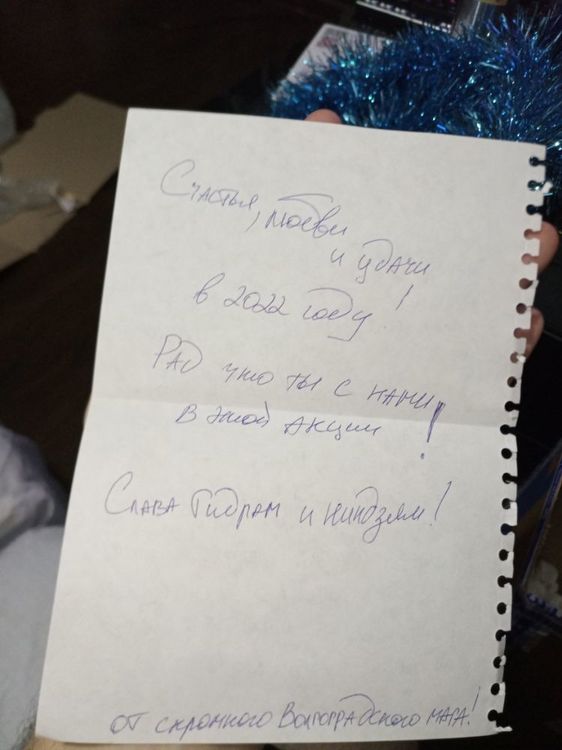 Счастья, любви
и удачи
в 2022 году!
Рад что ты с нами
в этой акции!
Слава Гидрам и ниндзям!
от скромного Волгоградского мага!